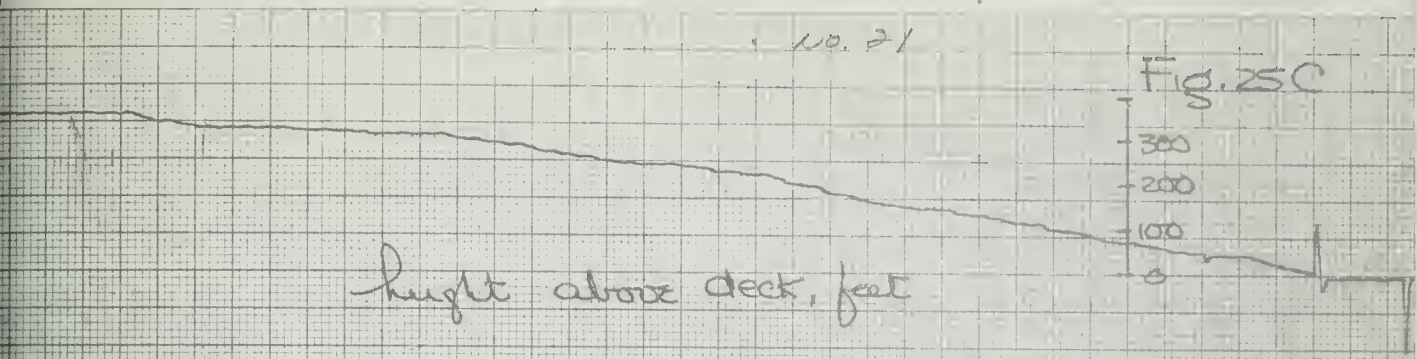 No. 21
Fig. 25C
300
200
100
0
height above deck, feet